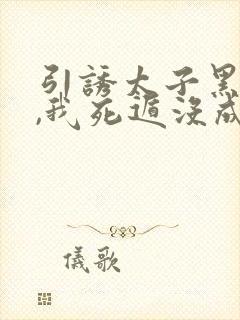 引誘太子黑
,我死遁沒成
儀歌